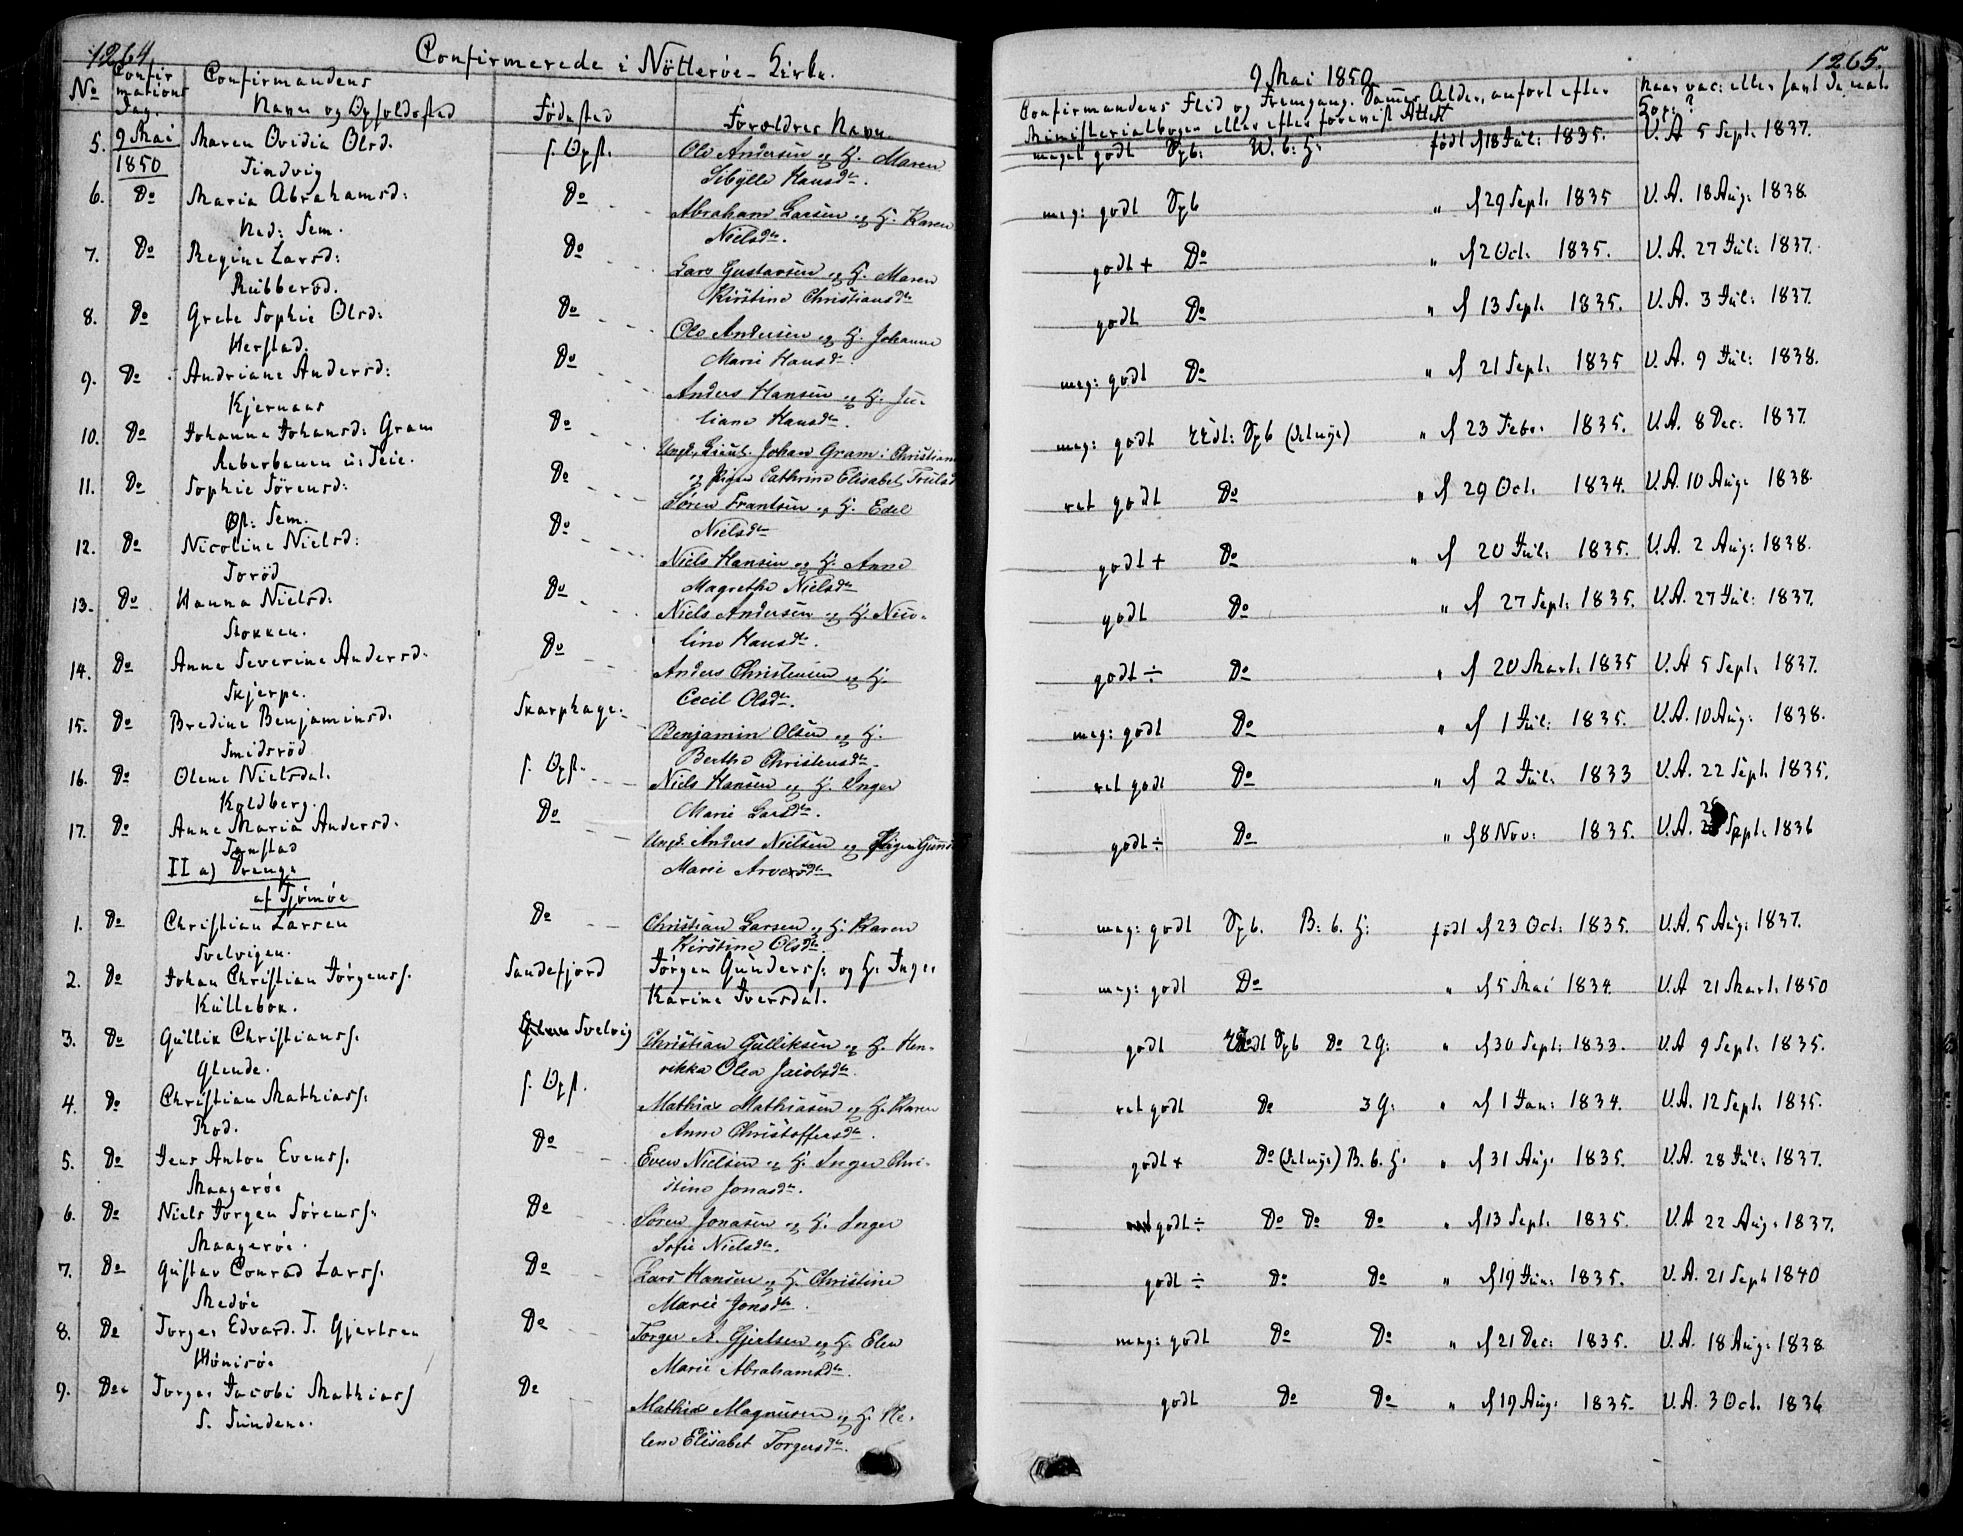 1264.
Confirmerede i Nötterøe-Kirke.
No
Confirmations Dag.
Confirmandens Navn og Opholdssted
Födested
Forældres Navn
5. 9 Mai 1850 Maren Ovidia Olsd. f. Opst. Ole Andersen og H. Maren
Tindvig Sibÿlle Hansdtr.
6. Do Maria Abrahamsd: Do Abraham Larsen og H. Karen
Ned: Sem. Nielsdtr.
7. Do Regine Larsd: Do Lars Gustavsen og H. Maren
Rubberød. Kirstine Christiansdtr
8. Do Grete Sophie Olsd: Do Ole Andersen og H. Johanne
Herstad. Marie Hansdtr
9. Do Andriane Andersd: Do Anders Hansen og H. Ju-
Kjernaas liane Hansdtr.
10. Do Johanne Johansd: Gram Do Ungk. Lieut. Johan Gram i Christian
u: Teie. og Pigen Cathrine Elisabet
11. Do Sophie Sörensd: Do Sören Frantsen og H. Edel
Op: Sem. Nielsdtr
12. Do Nicoline Nielsd: Do Niels Hansen og H. Anne
Toröd Magrethe Nielsdtr
13. Do Hanna Nielsd: Do Niels Andersen og H. Nico-
Stokken. line Hansdtr.
14. Do Anne Severine Andersd. Do Anders Christensen og H.
Skjerpe. Cecil Olsdtr.
15. Do Bredine Benjaminsd. Skarphage. Benjamin Olsen og H.
Smidsröd Berthe Christensdtr.
16. Do Olene Nielsdat. f. Opst. Niels Hansen og H. Inger
Koldberg. Marie Larsdtr.
17. Do Anne Maria Andersd. Do Ungk. Anders Nielsen og Pigen
Tanstad Marie
II a) Drenge
af Tjömöe
1. Do Christian Larsen Do Christian Larsen og H. Karen
Svelvigen. Kirstine Olsdtr.
2. Do Johan Christian Jörgenss. Sandefjord Jörgen Gunderss: og H. Inger
Küllebok. Karine Iversdat.
3. Do Gullik Christianss. Svelvig Christian Gulliksen og H. Hen-
Glende. rikka Olea Jacobsdtr.
4. Do Christian Mathiass: f. Opst. Mathias Mathiasen og H. Karen
Rod. Anne Christoffersdtr.
5. Do Jens Anton Evenss. Do Even Nielsen og H. Inger Chri-
Maageröe stine Jonasdtr.
6. Do Niels Jorgen Sörenss. Do Sören Jonasen og H. Inger
Maageröe. Sofie Nielsdtr.
7. Do Gustav Conrad Larss. Do Lars Hansen og H. Christine
Medöe Marie Jonsdtr.
8. Do Torger Edvard T. Gjertsen Do Torger A. Gjertsen og H. Elen
Hönisöe Marie Abrahamsdtr.
9. Do Torger Jacobi Mathiass Do Mathias Magnusen og H. He-
S. Sundene. lene Elisabet Torgersdtr.
1265.
9 Mai 1850
Confirmandens Flid og Fremgang. Sammes Alder, anfört efter
Ministerialbogen eller efter forevist Attest
Naar vac: eller havt de nat. Kop: ?
meget godt Spb: W. b: H: födt d 18 Jul: 1835. V. A. 5 Sept. 1837.
meg: godt Spb " d 29 Sept. 1835 V. A. 18 Aug: 1838.
godt + Do " d 2 Oct. 1835. V. A. 27 Jul: 1837.
godt Do " d 13 Sept. 1835. V. A. 3 Jul: 1837.
meg: godt Do " d 21 Sept. 1835 V. A. 9 Jul: 1838.
meg: godt Spb (det nye) " d 23 Febr. 1835. V. A. 8 Dec: 1837.
ret godt Do " d 29 Oct. 1834. V. A. 10 Aug: 1838.
godt + Do " d 20 Jul: 1835. V. A. 2 Aug: 1838.
godt Do " d 27 Sept: 1835. V. A. 27 Jul: 1837.
godt ÷ Do " d 20 Mart. 1835 V. A 5 Sept. 1837.
meg: godt Do " d 1 Jul: 1835. V. A. 10 Aug: 1838.
ret godt Do " d 2 Jul: 1833 V. A. 22 Sept. 1835.
godt ÷ Do " d 8 Nov: 1835. V. A. Sept. 1836
meg: godt Spb. B: b. H: födt d 23 Oct: 1835. V. A. 5 Aug: 1837.
meg: godt Do " d 5 Mai 1834. V. A 21 Mart. 1850
godt Spb Do 2 G: " d 30 Sept: 1833. V. A 9 Sept. 1835.
ret godt Do 3 G: " d 1 Jan: 1834. V. A. 12 Sept. 1835.
godt + Do (det nye) B. b. H. " d 31 Aug. 1835. V. A. 28 Jul: 1837.
godt ÷ Do Do Do " d 13 Sept. 1835. V. A 22 Aug: 1837.
godt ÷ Do Do " d 19 Jun: 1835. V. A. 21 Sept 1840
meg: godt Do Do " d 21 Dec: 1835. V. A. 18 Aug: 1838
godt Do Do " d 19 Aug: 1835. V. A. 3 Oct. 1836